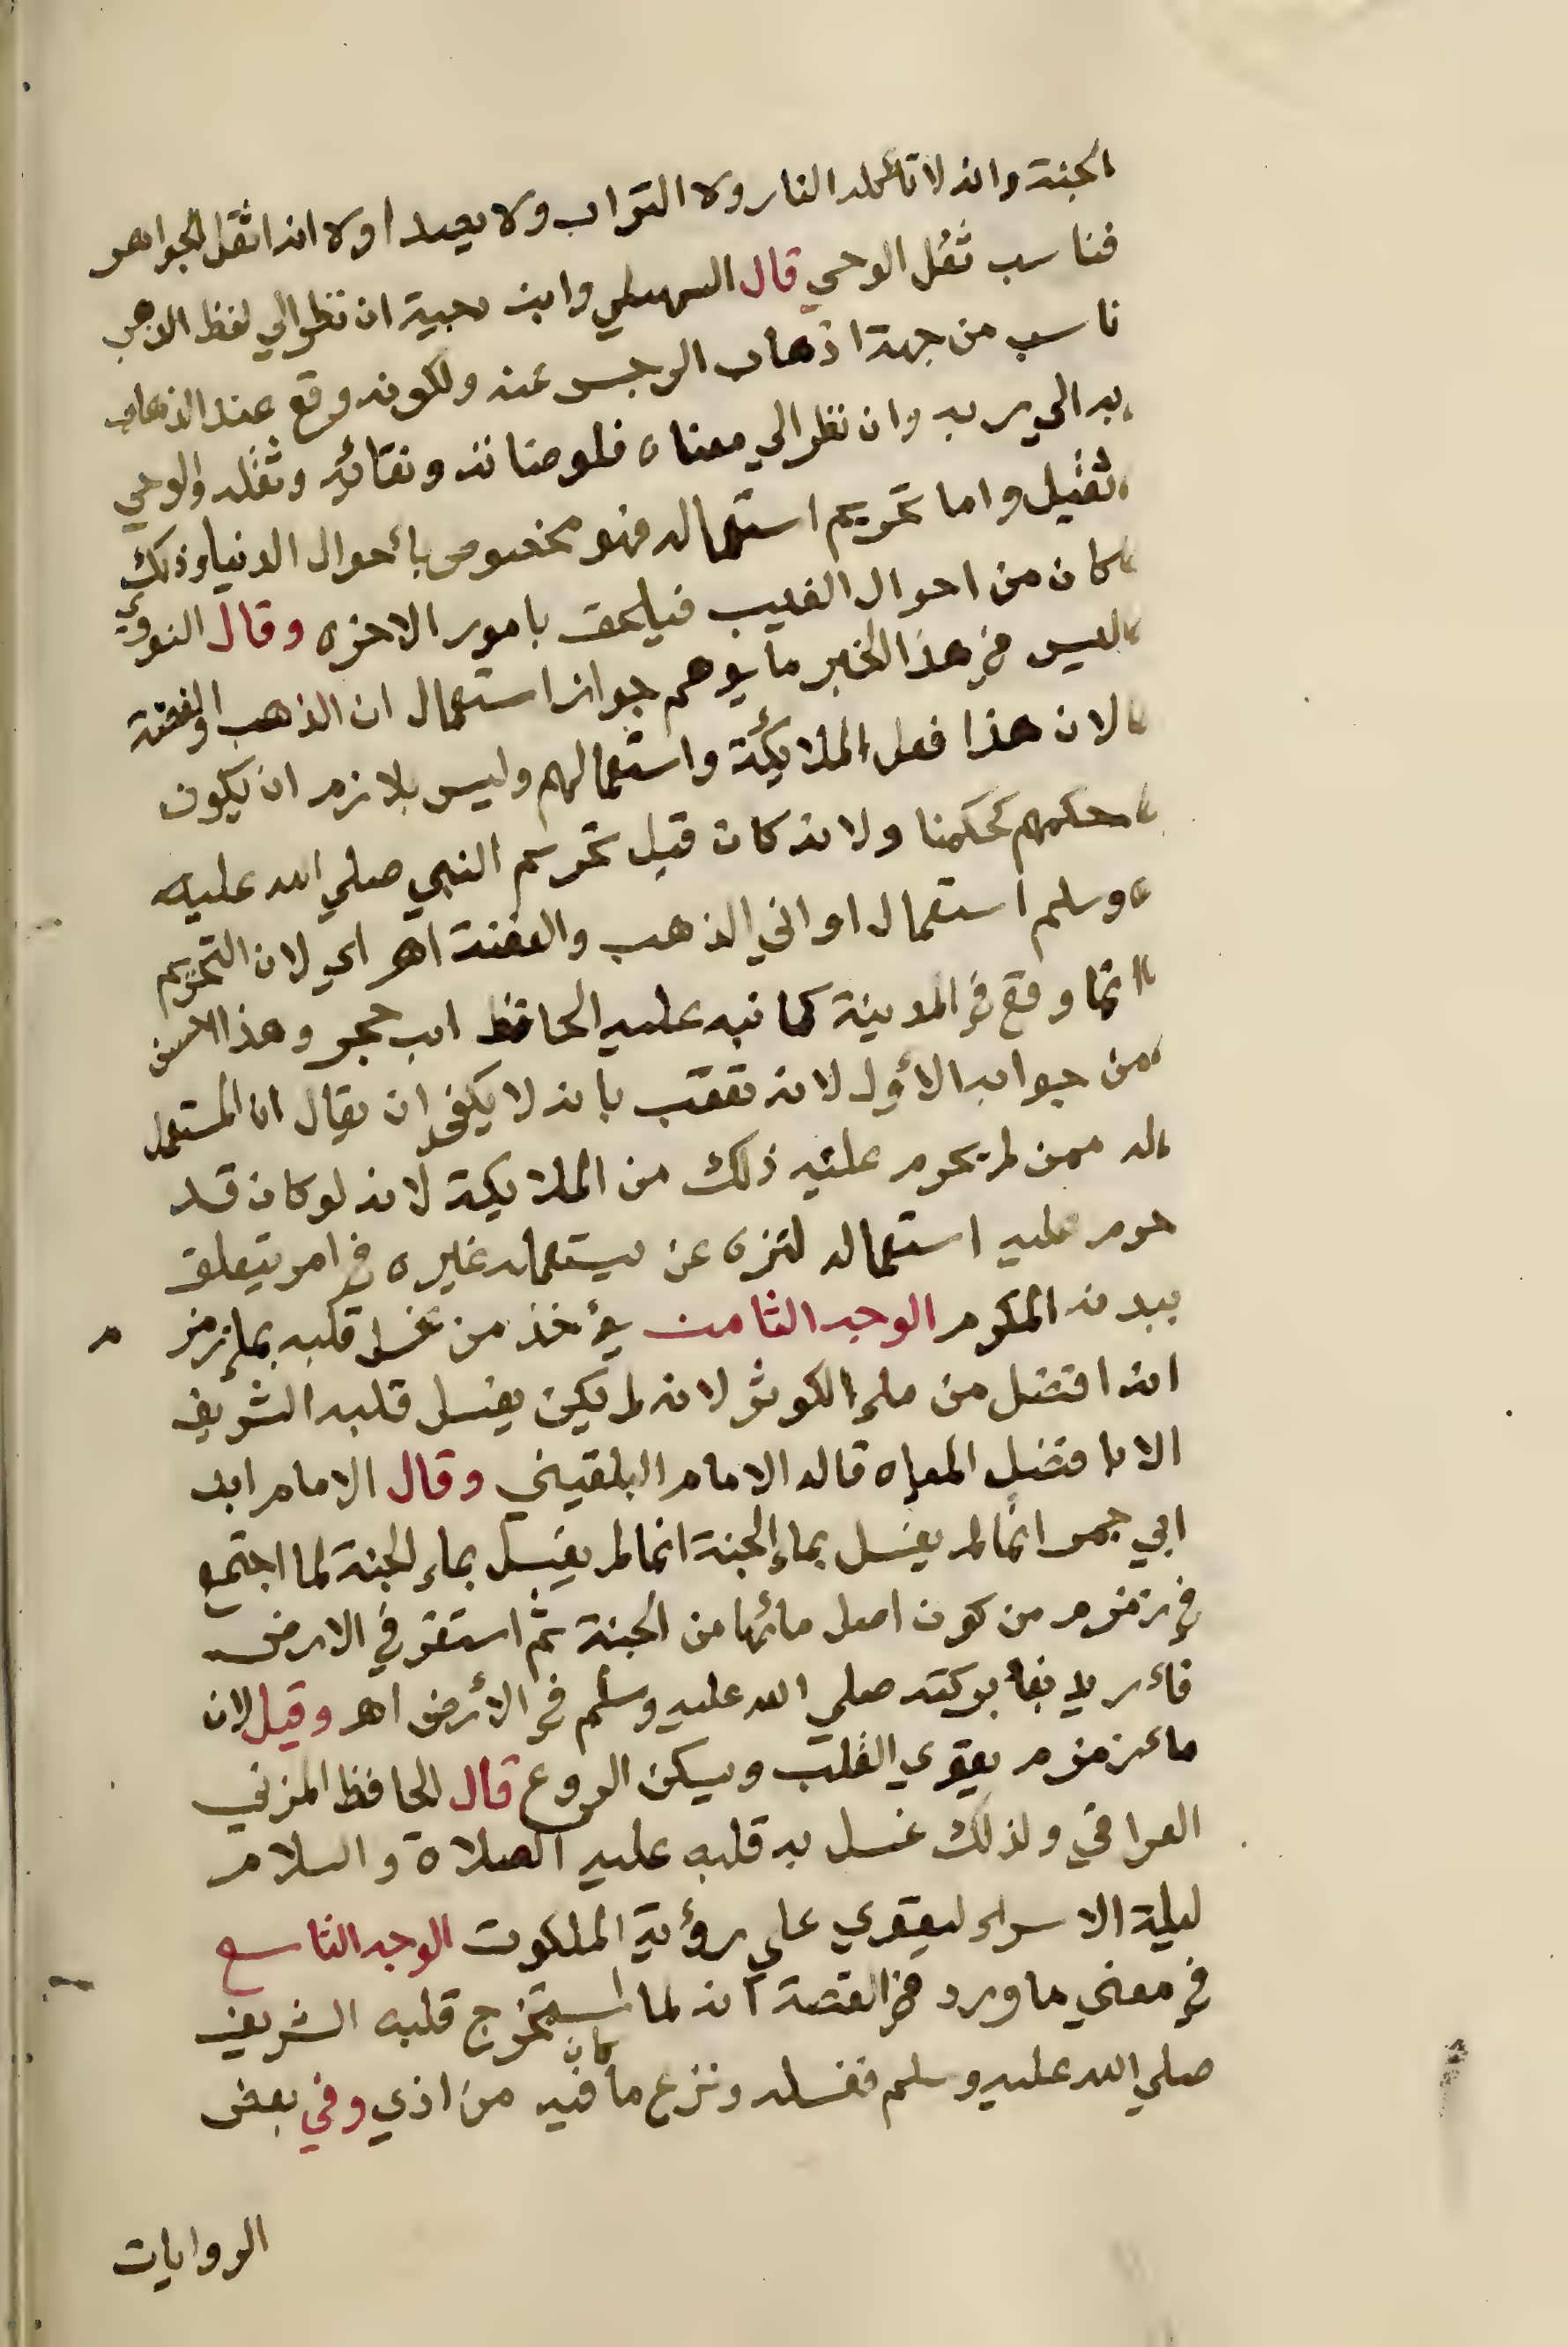 الجنة وانه لا تأكله النار ولا التراب ولا يصدا ولانه اثقل الجواهر
فناسب ثقل الوحي قال السهيلي وابن دحية ان نظر الي لفظ الذهب
ناسب من جهة اذهاب الرجس عنه ولكونه وقع عند الذهاب
به الي ربه وان نظر الي معناه فلوضائته ونقائه وثقله والوحي
ثقيل واما تحريم استعماله فهو مخصوص بأحوال الدنيا وذلك
كان من احوال الغيب فيلحق بامور الاخره وقال النووي
ليس في هذا الخبر ما يوهم جواز استعمال ان الذهب والفضة
لان هذا فعل الملائكة واستعمالهم وليس بلازم ان يكون
حكمهم كحكمنا ولانه كان قبل تحريم النبي صلي الله عليه
وسلم استعمال اواني الذهب والفضة اهر اي لان التحريم
انما وقع في المدينة كما نبه عليه الحافظ ابن حجر وهذا احسن
من جوابه الأول لانه تعقب بانه لا يكفي ان يقال ان المستعمل
له ممن لم يحرم عليه ذلك من الملايكة لانه لو كان قد
حرم عليه استعماله لنزه عن يستعمله غيره في امر يتعلق
ببدنه المكرم الوجه الثامن يؤخذ من غسل قلبه بماء زمزم
انه افضل من ماء الكوثر لانه لم يكن يغسل قلبه الشريف
الا بافضل المياه قاله الامام البلقيني وقال الامام ابن
ابي جمره انما لم يغسل بماء الجنة انما لم يغسل بماء الجنة لما اجتمع
في زمزم من كون اصل مائها من الجنة ثم استقر في الارض
فأريد بقا بركته صلي الله عليه وسلم في الأرض اهر وقيل لان
ماء زمزم يقوي القلب ويسكن الروع قال الحافظ المزني
العراقي ولذلك غسل به قلبه عليه الصلاة والسلام
ليلة الاسراء ليقوي علي رؤية الملكوت الوجه التاسع
في معني ما ورد في القصة انه لما استخرج قلبه الشريف
صلي الله عليه وسلم فغسله ونزع ما كان فيه من اذي وفي بعض
الروايات